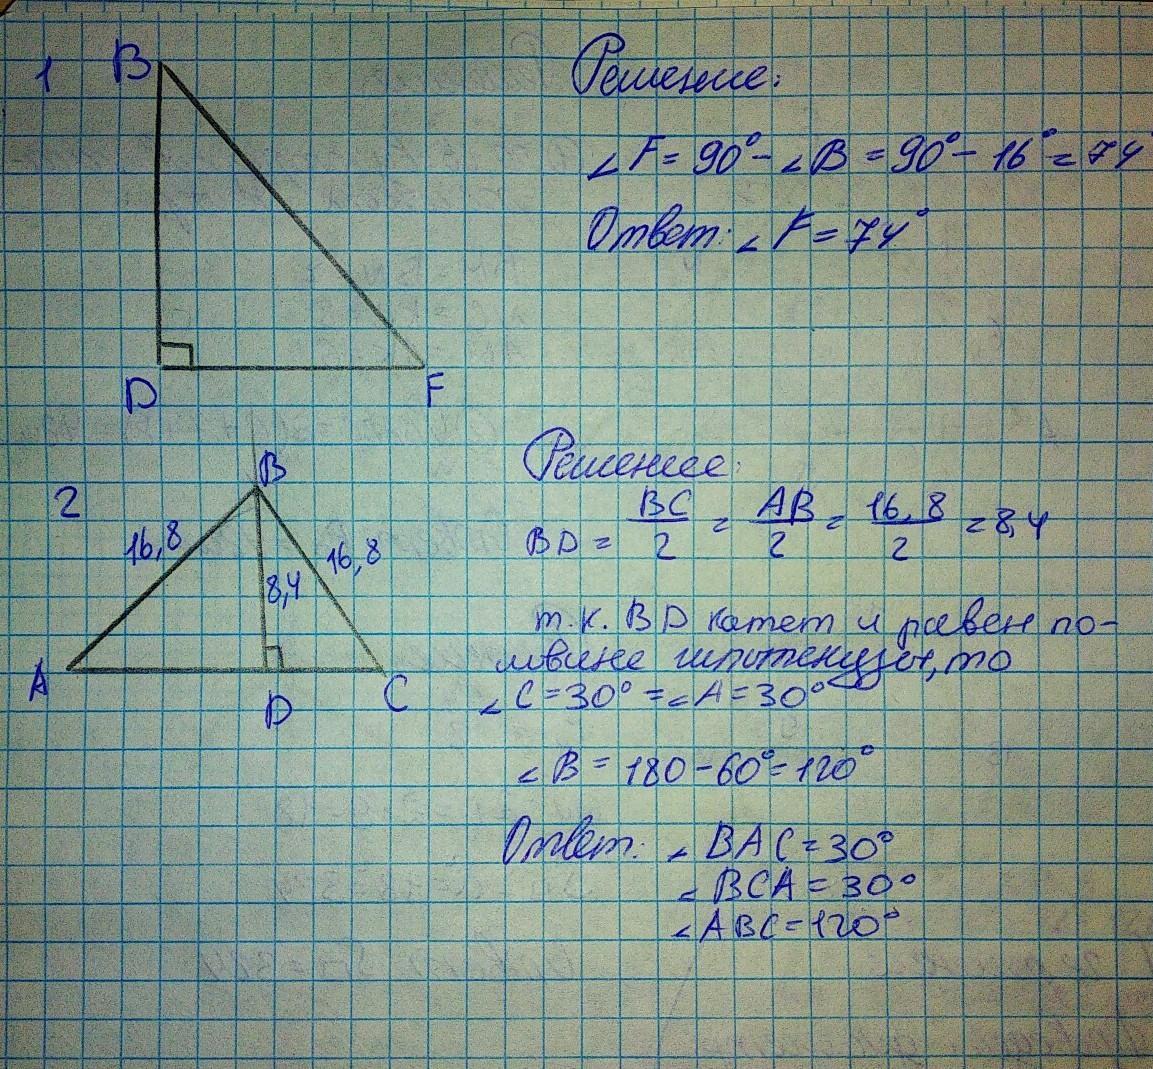 1
B
Решение:
∠F = 90° - ∠B = 90° - 16° = 74
Ответ: ∠F = 74°
D
F
2
B
16,8
16,8
8,4
A
D
C
Решение:
BD = BC/2 = AB/2 = 16,8/2 = 8,4
т.к. BD катет и равен по-
ловине гипотенузы, то
∠C = 30° = ∠A = 30°
∠B = 180 - 60° = 120°
Ответ: ∠BAC = 30°
∠BCA = 30°
∠ABC = 120°